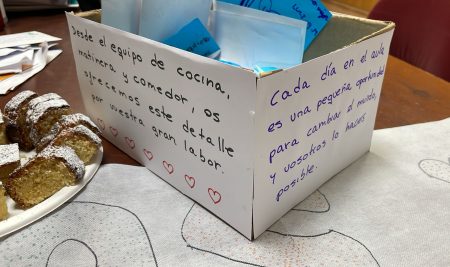 Desde el equipo de cocina,
matinera, y comedor, os
ofrecemos este detalle
por vuestra gran labor.
Cada día en el aula
es una pequeña oportunidad
para cambiar el mundo,
y vosotros lo hacéis
posible.